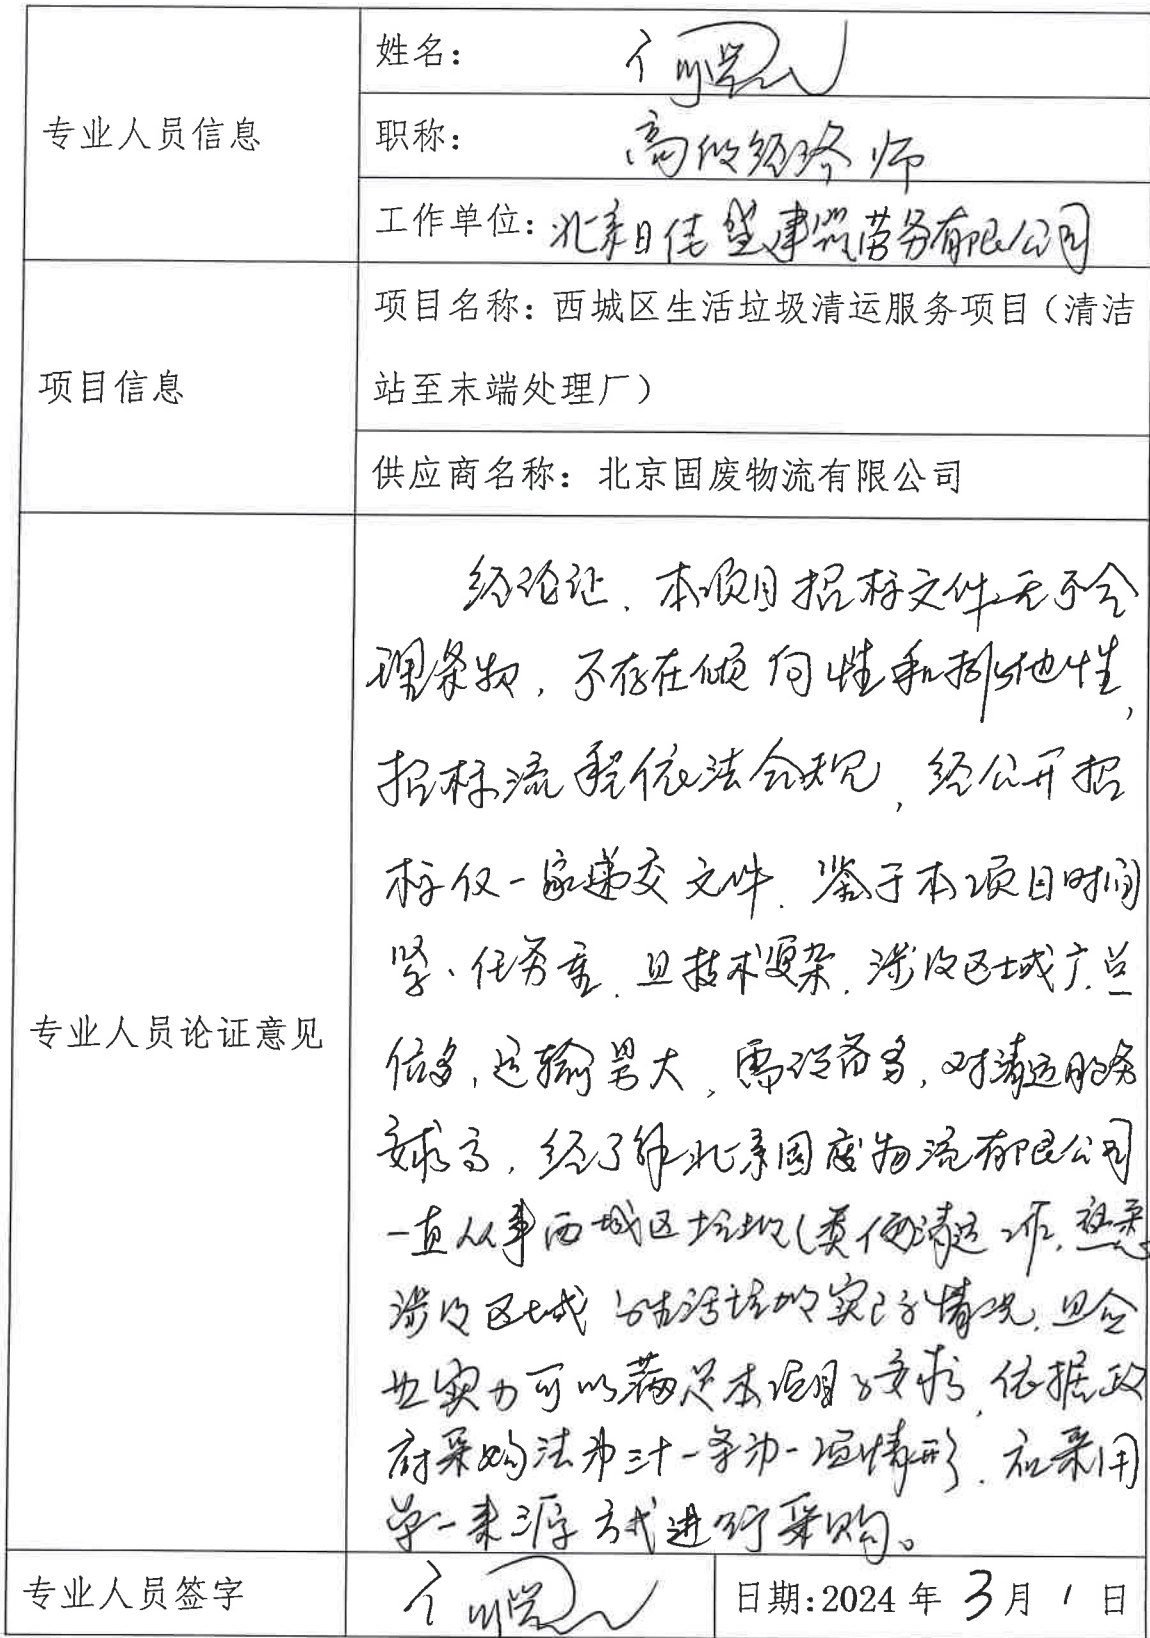 专业人员信息
姓名：
职称： 高级经济师
工作单位：北京日佳 建筑劳务有限公司
项目信息
项目名称：西城区生活垃圾清运服务项目（清洁
站至末端处理厂）
供应商名称：北京固废物流有限公司
专业人员论证意见
经论证，本项目招标文件无不合
理条款，不存在倾向性和排他性，
招标流程依法合规，经公开招
标仅一家递交文件。鉴于本项目时间
紧、任务重，且技术复杂，涉及区域广，点
位多，运输量大，需设备多，对清运服务
要求高，经了解北京固废物流有限公司
一直从事西城区垃圾 清运工作，熟悉
涉及区域的生活垃圾实际情况，且企
业实力可以满足本项目的要求，依据政
府采购法第三十一条第一项情形，应采用
单一来源方式进行采购。
专业人员签字
日期:2024 年 3 月 1 日